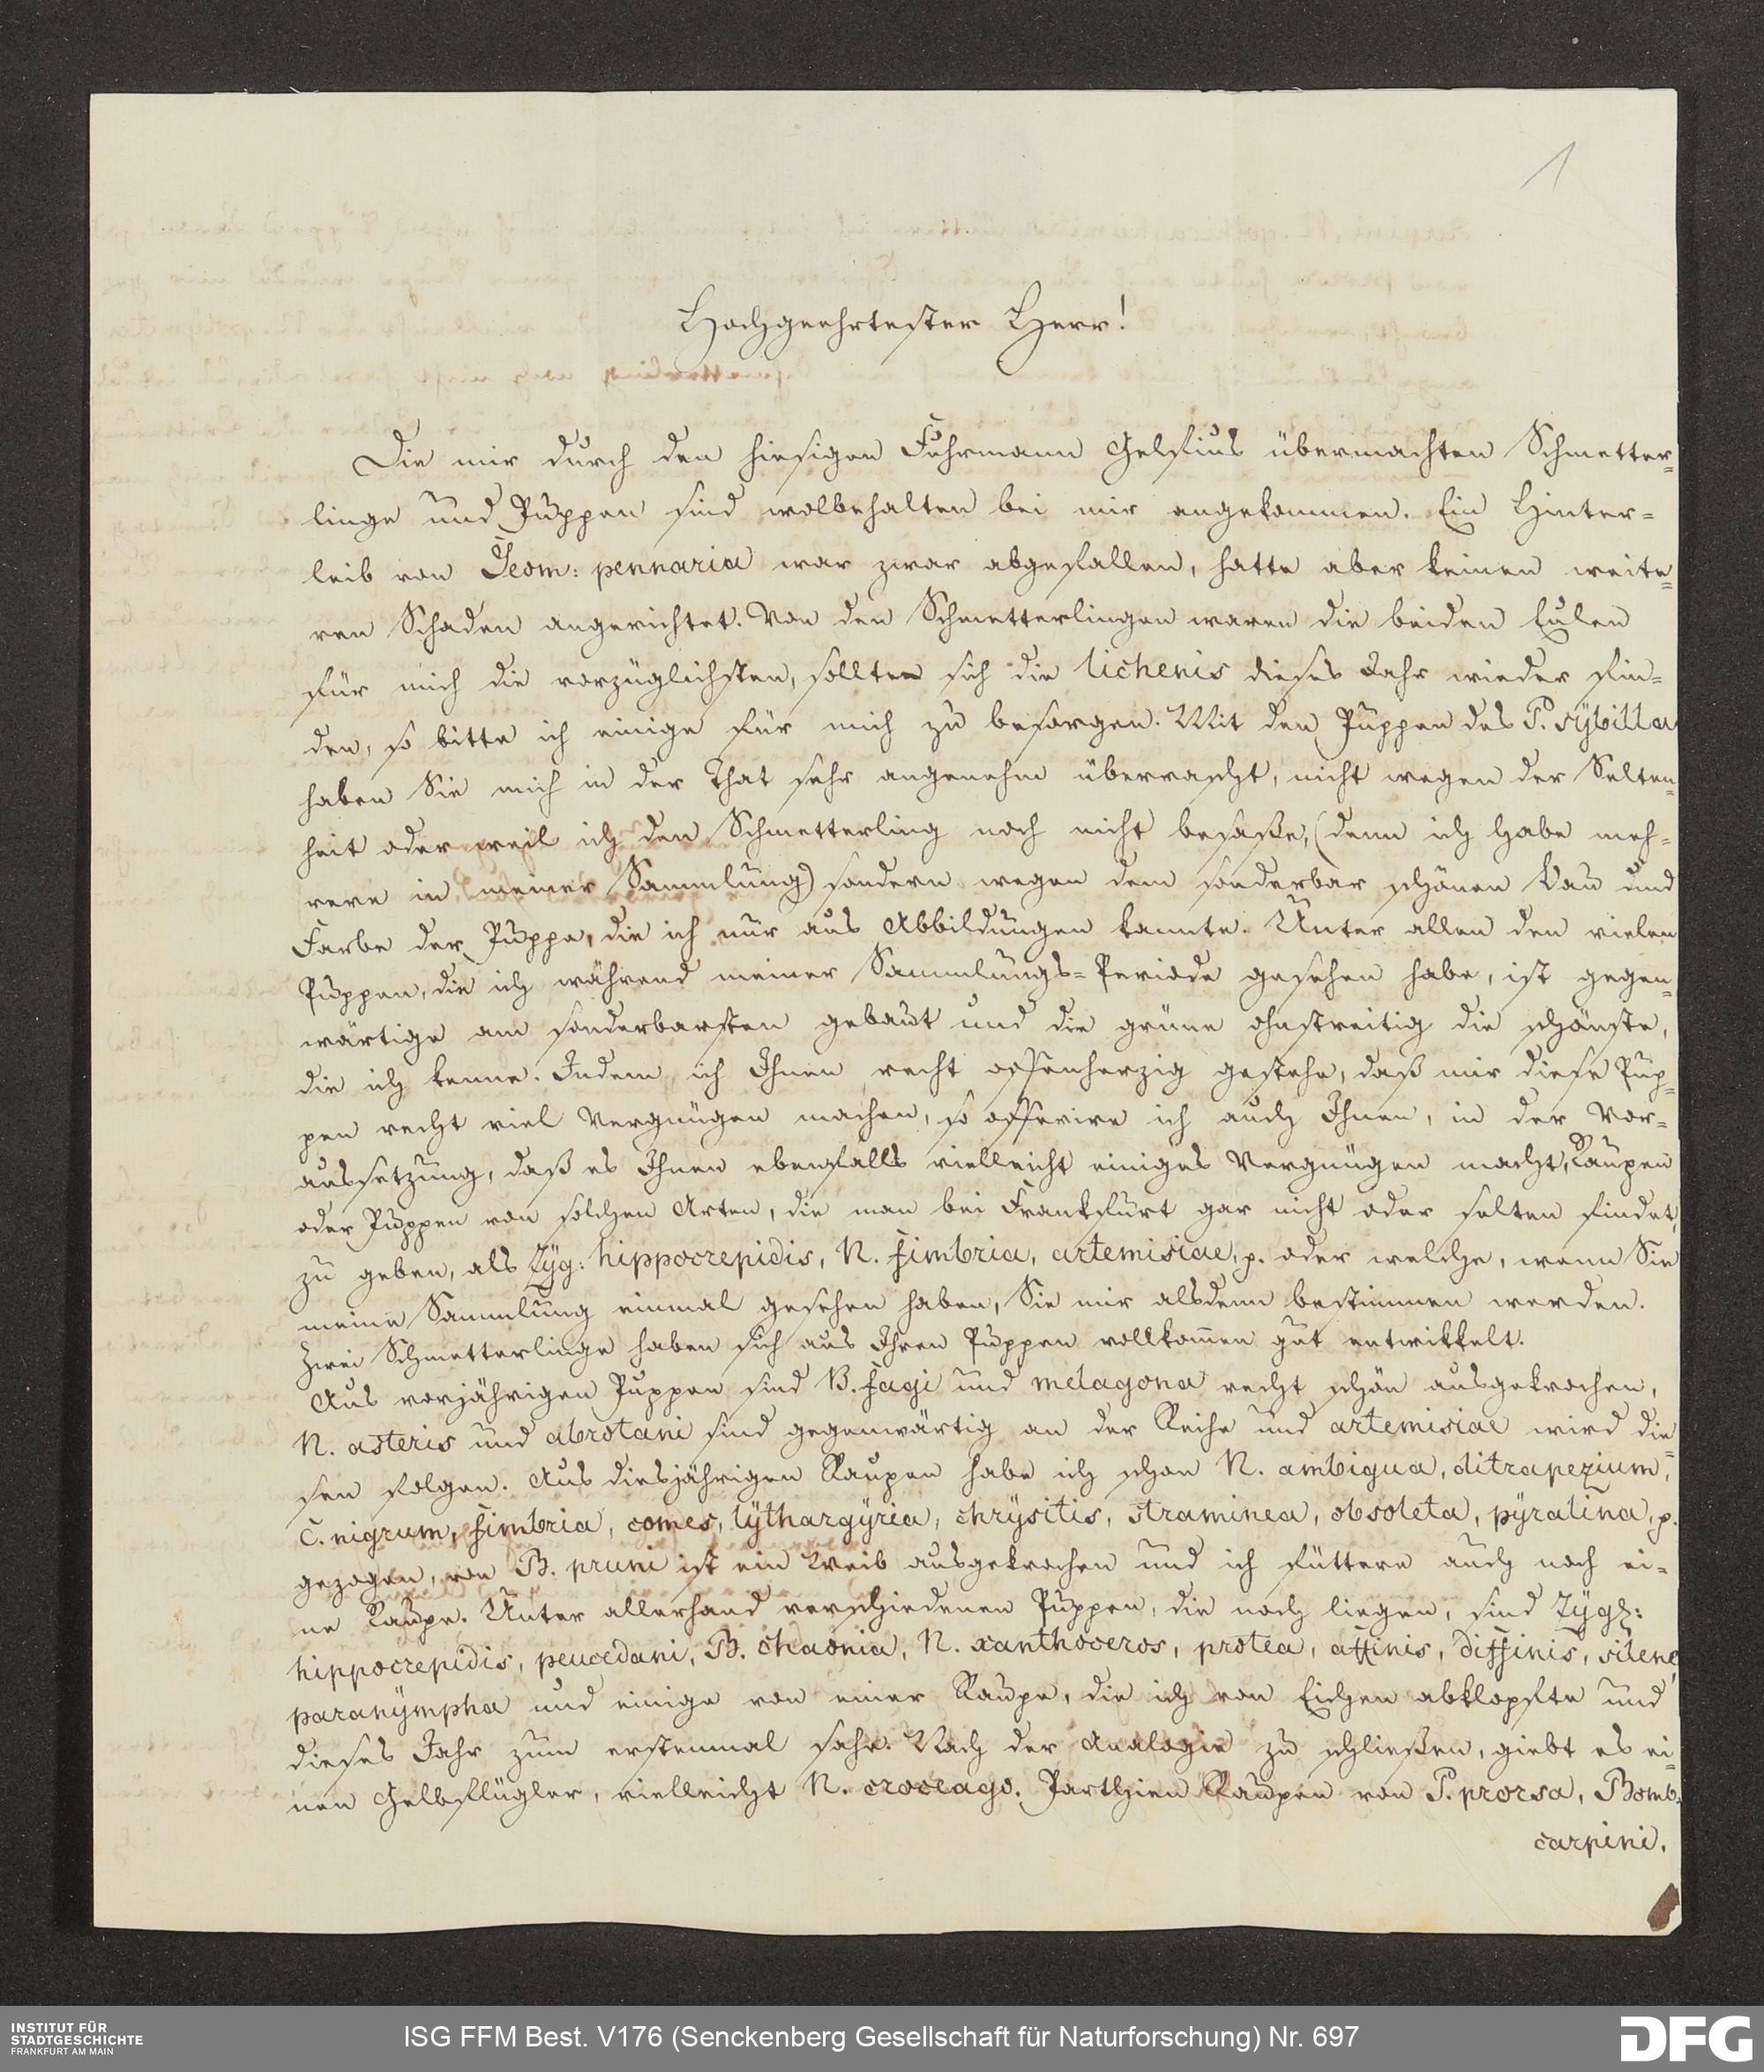 1
Hochgeehrtester Herr!
Die mir durch den hiesigen Fuhrmann Gelfius übermachten Schmetter-
linge und Puppen sind wolbehalten bei mir angekommen. Ein Hinter-
leib von Geom: pennaria war zwar abgefallen, hatte aber keinen weite-
ren Schaden angerichtet. Von den Schmetterlingen waren die beiden Eulen
für mich die vorzüglichsten, sollten sich die lichenis dieses Jahr wieder fin-
den, so bitte ich einige für mich zu besorgen. Mit den Puppen des P. sÿbilla
haben Sie mich in der That sehr angenehm überrascht, nicht wegen der Selten-
heit oder weil ich den Schmetterling noch nicht besaße, (denn ich habe meh-
rere in meiner Sammlung) sondern wegen dem sonderbar schönen Bau und
Farbe der Puppe, die ich nur aus Abbildungen kannte. Unter allen den vielen
Puppen, die ich während meiner Sammlungs-Periode gesehen habe, ist gegen-
wärtige am sonderbarsten gebaut und die grüne ohnstreitig die schönste,
die ich kenne. Indem ich Ihnen recht offenherzig gestehe, daß mir diese Pup-
pen recht viel Vergnügen machen, so offerire ich auch Ihnen, in der Vor-
aussetzung, daß es Ihnen ebenfalls vielleicht einiges Vergnügen macht, Raupen
oder Puppen von solchen Arten, die man bei Frankfurt gar nicht oder selten findet,
zu geben, als Zÿg: hippocrepidis, N. fimbria, artemisiae, p. oder welche, wenn Sie
meine Sammlung einmal gesehen haben, Sie mir alsdenn bestimmen werden.
Zwei Schmetterlinge haben sich aus Ihren Puppen vollkom̄en gut entwikkelt.
Aus vorjährigen Puppen sind B. fagi und melagona recht schön ausgekrochen,
N. asteris und abrotani sind gegenwärtig an der Reihe und artemisiae wird die-
sen folgen. Aus diesjährigen Raupen habe ich schon N. ambigua, ditrapezium,
C. nigrum, fimbria, comes, lÿthargÿria, chrÿsitis, straminea, obsoleta, pÿralina, p.
gezogen, von B. pruni ist ein Weib ausgekrochen und ich füttere auch noch ei-
ne Raupe. Unter allerhand verschiedenen Puppen, die noch liegen, sind Zÿg:
hippocrepidis, peucedani, B. chaonia, N. xanthoceros, protea, affinis, diffinis, silene,
paranÿmpha und einige von einer Raupe, die ich von Eichen abklopfte und
dieses Jahr zum erstenmal sahe. Nach der Analogie zu schließen, giebt es ei-
nen Gelbflügler, vielleicht N. croceago. Parthien Raupen von P. prorsa, Bomb.
carpini.
INSTITUT FÜR
STADTGESCHICHTE
FRANKFURT AM MAIN
ISG FFM Best. V176 (Senckenberg Gesellschaft für Naturforschung) Nr. 697
DFG